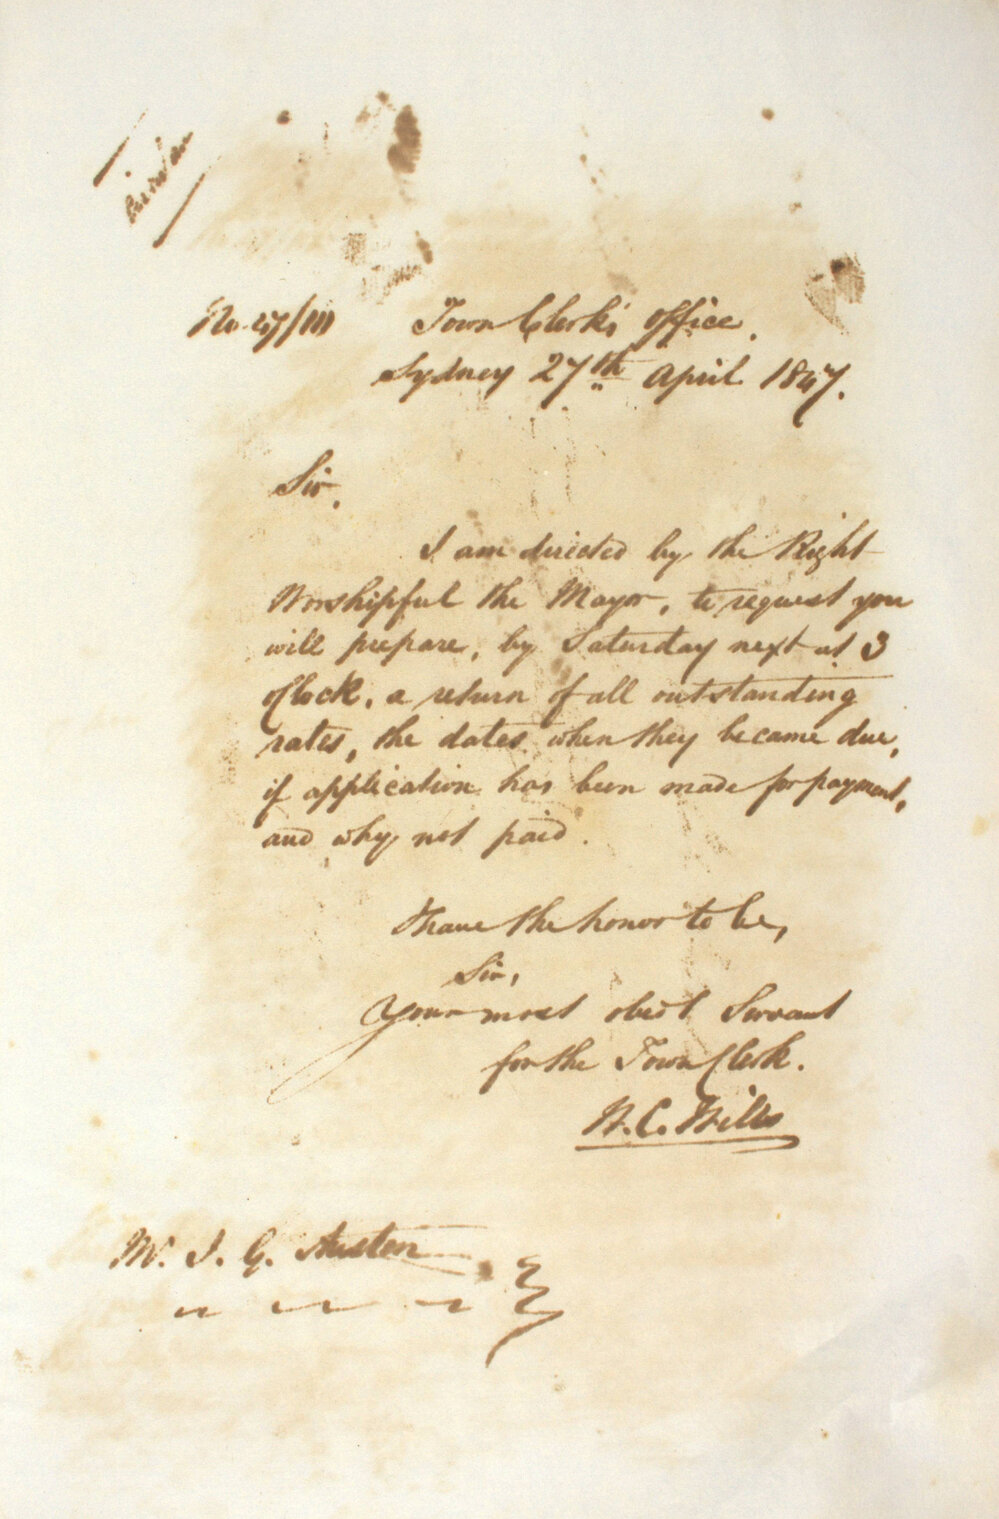 No. 47/111 Town Clerk's Office,
Sydney 27th April 1847.
Sir,
I am directed by the Right
Worshipful the Mayor, to request you
will prepare, by Saturday next at 3
o'Clock, a return of all outstanding
rates, the dates when they became due,
if application has been made for payment,
and why not paid.
I have the honor to be,
Sir,
Your most obedt Servant
for the Town Clerk.
W. C. Wills
Mr. J. G. Austen